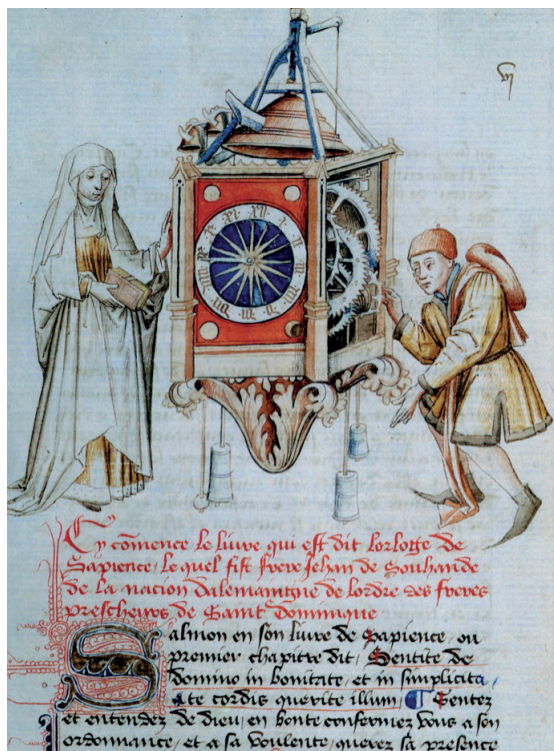 vi
Cy cōmence le liure qui est dit lorloge de
Sapience, le quel fist frere Jehan de Souhande
de la nacion dalemaingne de lordre des freres
prescheurs de Saint dominique
Salmon en son liure de Sapience, ou
premier chapitre dit, Sentite de
domino in bonitate, et in simplicita,
te cordis querite illum, Sentez
et entendez de dieu, en bonte confermez vous a son
ordonnance, et a sa voulente, querez sa presence